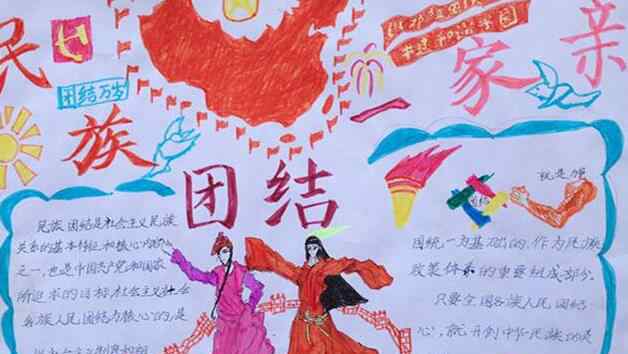 民族团结一家亲
团结万岁
共建和谐家园
民族团结是社会主义民族
关系的基本特征和核心内容
之一,也是中国共产党和国家
所追求的目标社会主义社会
各族人民团结为核心的,是
就是加强
团结
国统一为基础的,作为民族
政策体系的重要组成部分。
只要全国各族人民团结
心,就